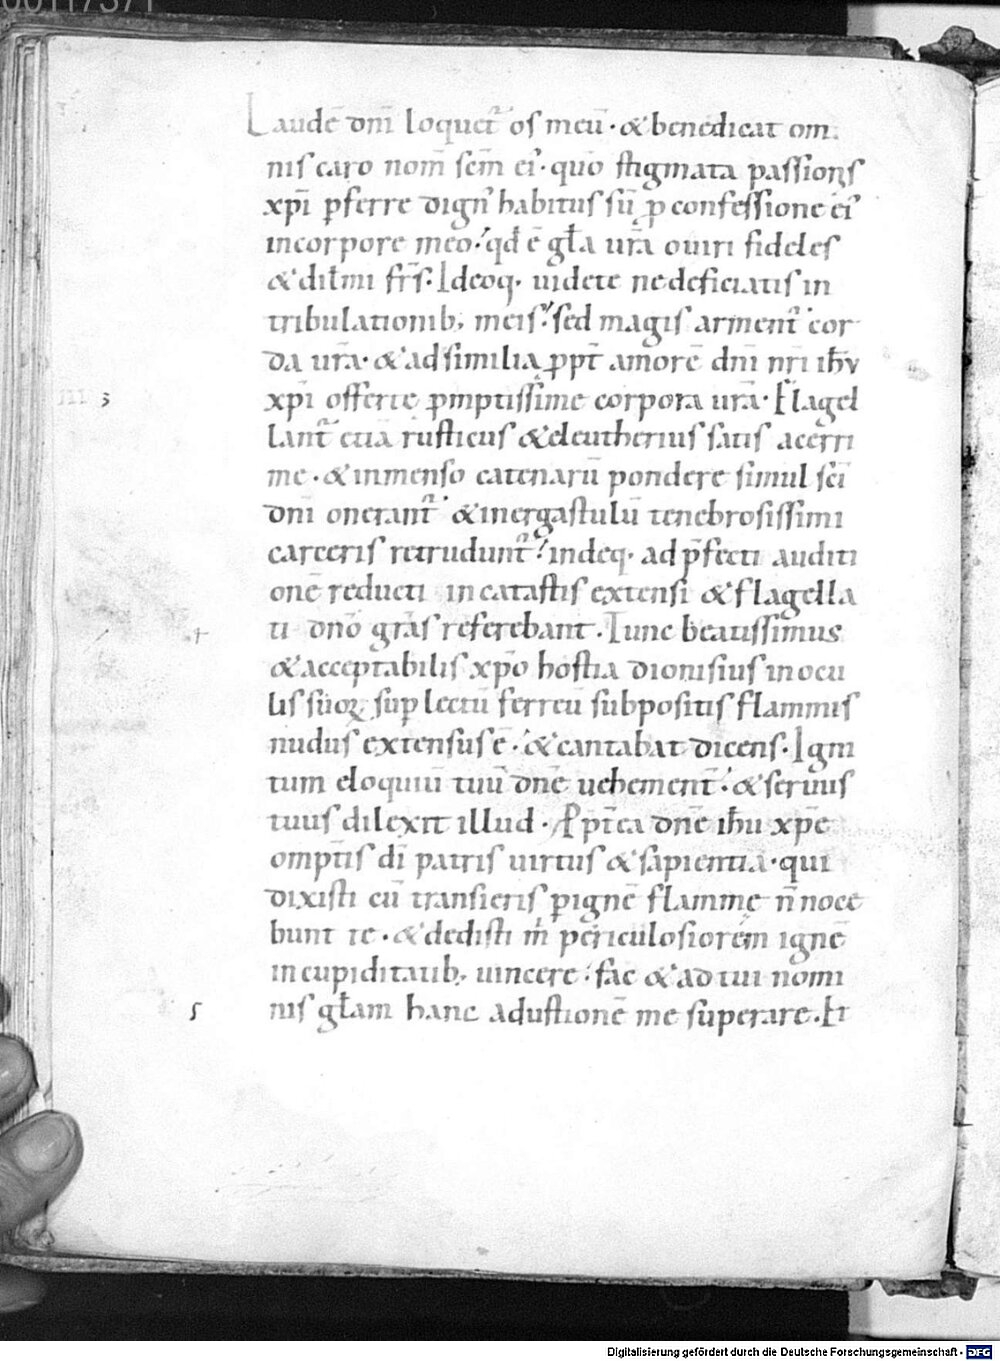 00117371
Laudē dnī loquet᷑ os meū · & benedicat om
nis caro nom̄ scm̄ ei᷒ · quō stigmata passionis
xp̄i p̄ferre dign᷒ habitus sū p̱ confessione ei᷒
incorpore meo · qd̄ ē gl̄a ur̄a o uiri fideles
& dil̄mi fr̄s · Ideoq; uidete ne deficiatis in
tribulationib; meis · sed magis arment᷑ cor
da ur̄a · & ad similia ꝓpt̄ amorē dnī nr̄i ih̄u
xp̄i offerte ꝓmptissime corpora ur̄a · Flagel
III 3
lant᷑ etiā rusticus & eleutherius satis acerri
me · & inmenso catenarū pondere simul sc̄i
dnī onerant᷑ & inergastulū tenebrosissimi
carceris retrudunt᷑ · indeq; ad p̄fecti auditi
onē reducti incatastis extensi & flagella
ti dnō grās referebant · Tunc beatissimus
4
& acceptabilis xp̄o hostia dionisius inocu
lis suoꝝ sup̱ lectū ferreū subpositis flammis
nudus extensus ē · & cantabat dicens · Igni
tum eloquiū tuū dnē uehement᷑ · & seruus
tuus dilexit illud · Ꝓpt̄ea dnē ih̄u xp̄e
omp̄tis dī patris uirtus & sapientia · qui
dixisti cū transieris p̱ ignē flammę n̄ noce
bunt te · & dedisti m̄ periculosiorem ignē
incupiditatib; uincere · fac & ad tui nomi
nis gl̄am hanc adustionē me superare · Et
5
Digitalisierung gefördert durch die Deutsche Forschungsgemeinschaft - DFG